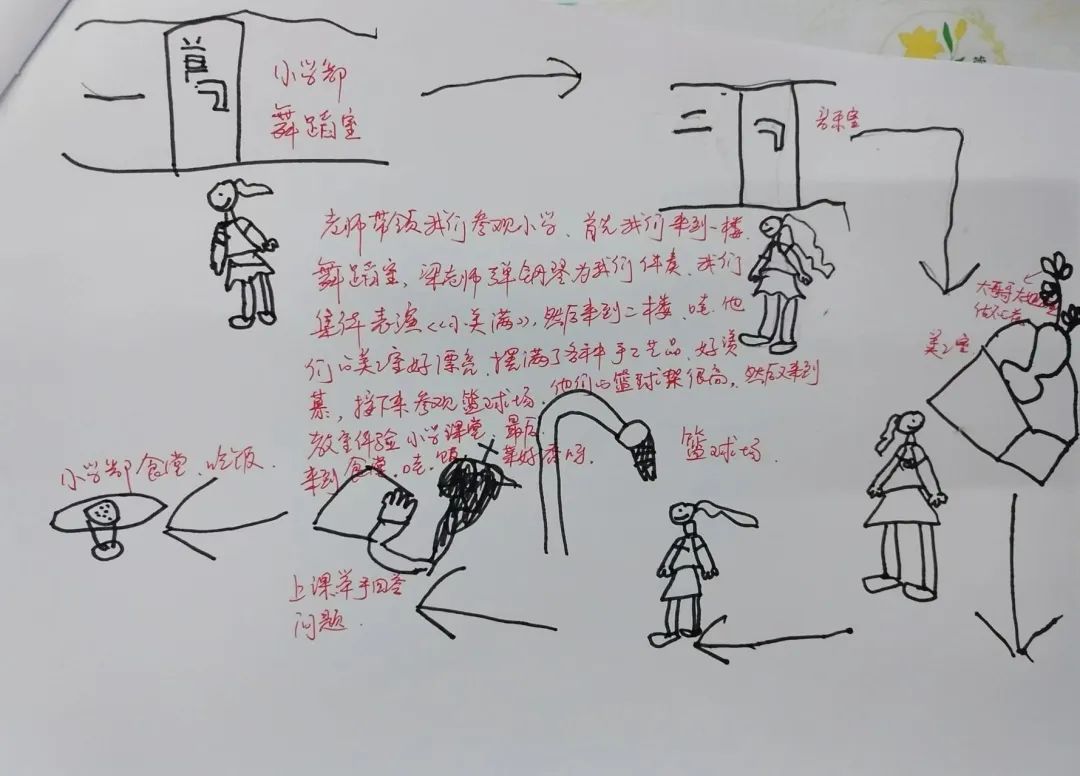 一
小学部
舞蹈室
二
音乐室
大哥哥大姐姐
美工室
老师带领我们参观小学、首先我们来到一楼
舞蹈室，梁老师弹钢琴为我们伴奏、我们
集体表演《小美满》，然后来到二楼、哇、他
们的美工室好漂亮、摆满了各种手工艺品、好羡
慕，接下来参观篮球场、他们的篮球架很高，然后又来到
教室体验小学课堂、最后
来到食堂，哇，
篮球场
小学部食堂、吃饭、
上课举手回答
问题、